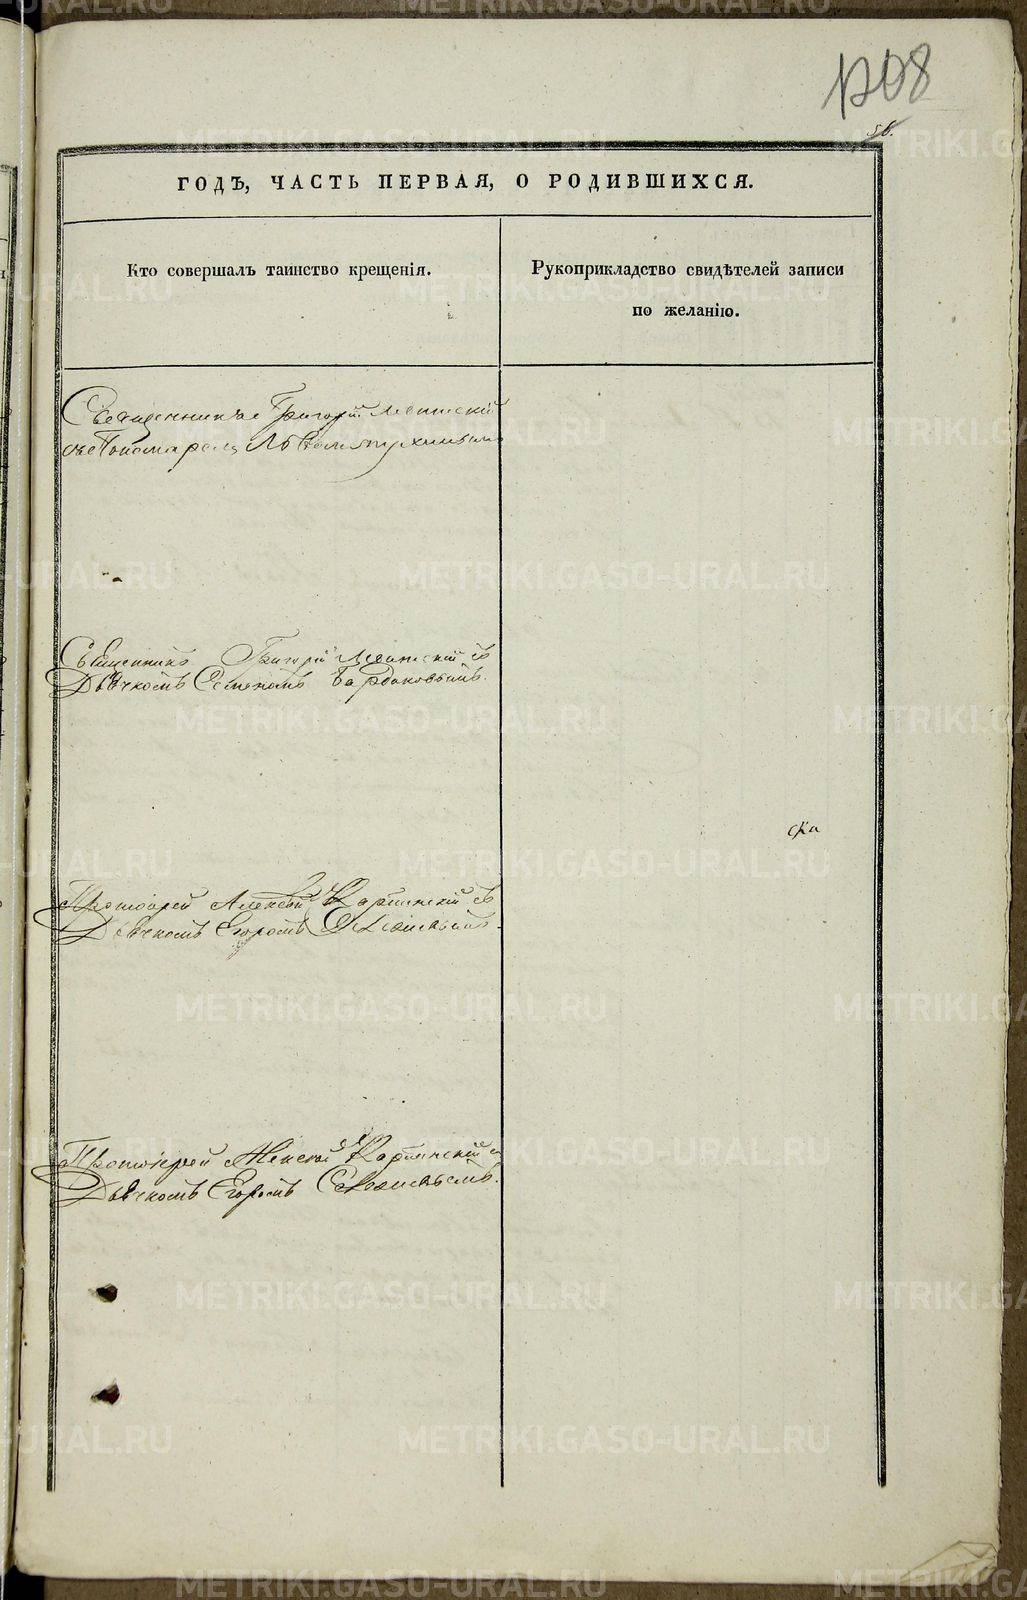 1208
56.
ГОДЪ, ЧАСТЬ ПЕРВАЯ, О РОДИВШИХСЯ.
Кто совершалъ таинство крещенія.
Рукоприкладство свидѣтелей записи
по желанію.
Священникъ Григорій Левитскій
съ Пономаремъ
Священникъ Григорій Левитскій съ
Дьячкомъ Семеномъ Бардаковымъ.
Протоіерей Алексѣй Карпинскій съ
Дьячкомъ Егоромъ
Протоіерей Алексѣй Карпинскій съ
Дьячкомъ Егоромъ
ска
METRIKI.GASO-URAL.RU